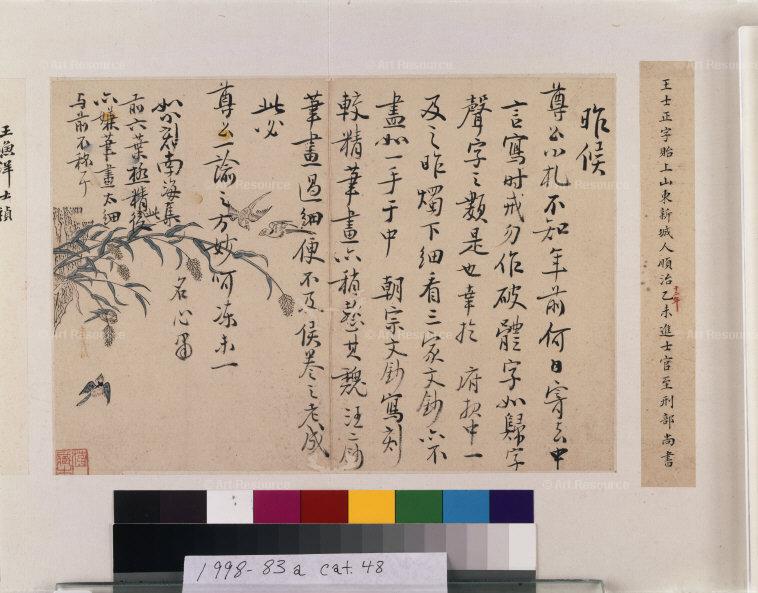 王士正字貽上山東新城人順治乙未進士官至刑部尚書
十二年
昨候
尊公小札不知年前何日寄去中
言寫時戒勿作破體字如歸字
聲字之類是也幸於 府報中一
及之昨燭下細看三家文鈔亦不
盡如一手于中 朝宗文鈔寫刻
較精筆畫亦稍蒼其魏汪二鈔
筆畫過細便不及侯卷之老成
此必
尊公一諭之方妙呵凍未一
名心肅
如刻南海集
前六葉極精後
亦嫌筆畫太細
与前不稱个
王漁洋士禎
1998-83a cat. 48
© Art Resource